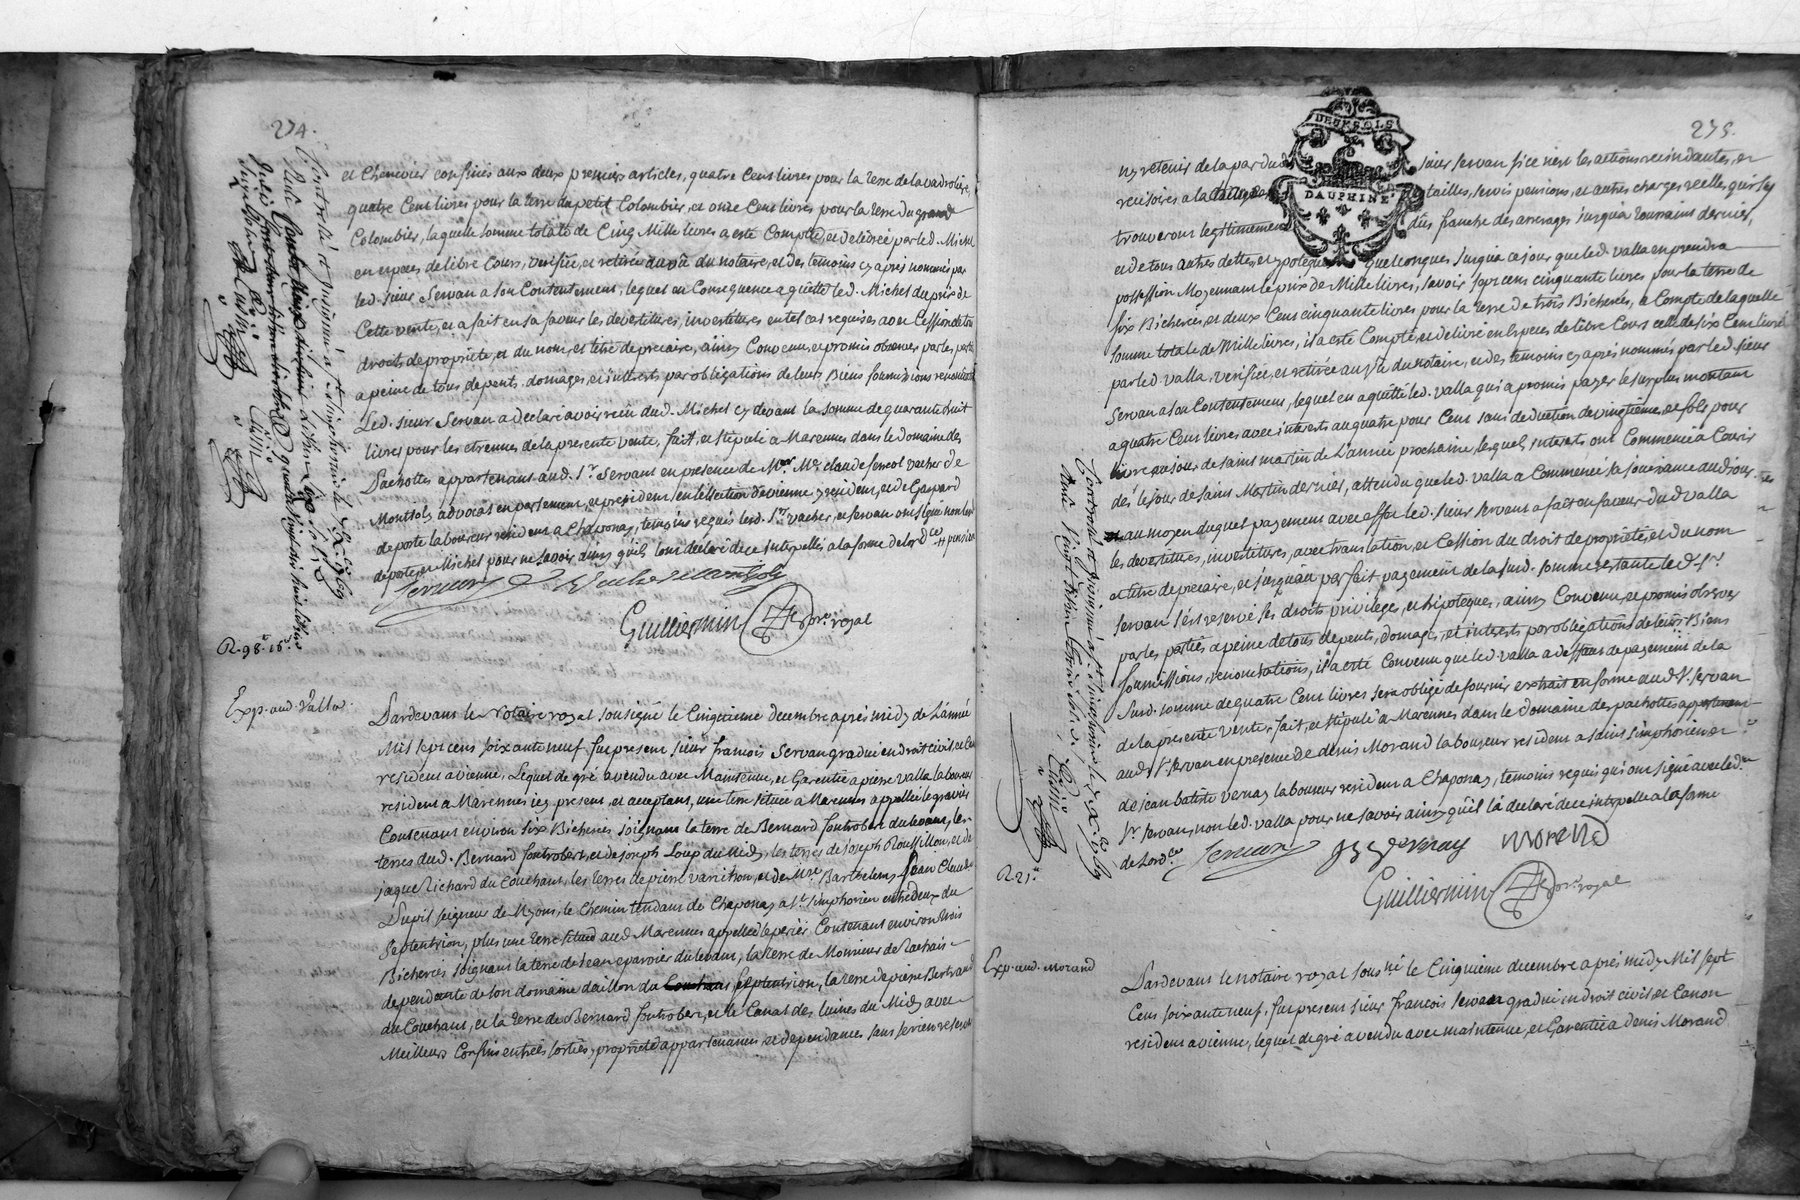 274.
et Chenevier confinés aux deux premiers articles, quatre Cent livres pour la terre de la
quatre Cent livres pour la terre du petit Colombier, et onze Cent livres pour la terre du grand
Colombier, laquelle somme totale de Cinq Mille livres a esté Comptée, et delivrée par led. Michel
en especes de libre Cours, verifiée, et retirée au vû du notaire, et des temoins cy après nommés par
led. sieur Servan a son Contentement, lequel en Consequence a quitté led. Michel du prix de
Cette vente, et a fait en sa faveur les devestitures, investitures en tel cas requises avec Cession de tou
droits de propriété, et du nom, et titre de precaire, ainsy Convenu, et promis observer par les parties
a peine de tous depents, domages, et interests par obligations de leurs Biens soumissions renontiations
Led. sieur Servan a declaré avoir reçu dud. Michel cy devant la somme de quarante huit
livres pour les etrennes de la presente vente, fait, et stipulé a Marennes dans le domaine des
Pachottes appartenant aud. Sr. Servant en presence de Me. claude vacher de
Montsols advocat en parlement, et president en l'élection de vienne y resident, et de Gaspard
deporte laboureur resident a Chaponay, temoins requis led. Sr. vacher, et servan ont signé non led.
deporte, et Michel pour ne savoir ainsy qu'ils l'ont declaré de ce interpellés a la forme de lordce.
Servan
Guilliermin nore. royal
R. 98. 16s.
Exp. aud. Valla.
Pardevant le Notaire royal sousigné le Cinquieme decembre après midy de L'année
Mil sept cens soixante neuf. fut present sieur francois Servan gradué en droit civil, et Can
resident a vienne, Lequel de gré a vendu avec Maintenue, et Garentie a pierre valla laboureur
resident a Marennes icy present, et acceptant, une terre située a Marennes appellée le gravier
Contenant environ six Bicherées joignant la terre de Bernard fontrobert du levant, les
terres dud. Bernard fontrobert, et de joseph Loup du Midy, les terres de joseph Roussillon, et de
jaque Richard du Couchant, les terres de pierre varichon, et de Mre. Barthelemy Jean Claude
Dupil seigneur de Myons, le Chemin tendant de Chaponay a St. simphorien entredeux du
Septentrion, plus une terre située aud. Marennes appellée le perier Contenant environ trois
Bicherées joignant la terre de Jean eparvier du levant, la terre de Monsieur de Rachais
dependante de son domaine daillon du Couchant septentrion, la terre de pierre Bertrand
du Couchant, et la terre de Bernard fontrobert, et le Canal des luines du Midy avec
Meilleurs Confins entrées sorties, propriétés appartenances, et dependances sans se rien reserver
275.
DEUX SOLS
DAUPHINE
ny retenir de la part dud. sieur servan si ce n'est les actions rescindantes, et
recisoires a la tailles, servis pensions, et autres charges reelles qui s'y
trouveront legitimement dus franche des arrerages jusqu'a Toussaints dernier,
et de tous autres dettes, et ypoteques quelconques jusqu'a ce jour que led. valla en prendra
possession Moyennant le prix de Mille livres, savoir sept cens cinquante livres pour la terre de
six Bicherées, et deux Cens cinquante livres pour la terre de trois Bicherées, a Compte de laquelle
somme totale de Mille livres, il a esté Compté, et delivré en Especes de libre Cours celle de six Cens livres
par led. valla, verifiée, et retirée au vû du notaire, et des temoins cy après nommés par led. sieur
Servan a son Contentement, lequel en a quitté led. valla qui a promis payer le surplus montant
a quatre Cent livres avec interests au quatre pour Cent sans deduction de vingtième, et sols pour
livre au jour de saint martin de L'année prochaine, lesquels interests ont Commencé a Courir
dès le jour de saint Martin dernier, attendu que led. valla a Commencé sa jouissance aud. jour
au moyen duquel payement avec effet led. sieur servant a fait en faveur dud. valla
les devestitures, investitures, avec translation, et Cession du droit de propriété, et du nom
et titre de precaire, et jusqu'au parfait payement de la susd. somme restante led. Sr.
servan s'est reservé ses droits, privileges, et hipoteques, ainsy Convenu, et promis observer
par les parties a peine de tous depents, domages, et interests par obligations de leurs Biens
soumissions, renontiations, il a esté Convenu que led. valla a deffaut de payement de la
susd. somme de quatre Cent livres sera obligé de fournir extrait en forme aud. Sr. servan
de la presente vente, fait, et stipulé a Marennes dans le domaine des pachottes appartenant
aud. Sr. servan en presence de denis Morand laboureur resident a saint simphorien, et
de jean batiste vernay laboureur resident a Chaponay, temoins requis qui ont signé avec led.
Sr. servan, non led. valla pour ne savoir ainsy qu'il l'a declaré de ce interpellé a la forme
de Lordce.
Servan
vernay
morand
Guilliermin nore. royal
R. 21s.
Exp. aud. Morand
Pardevant le notaire royal sousné le Cinquieme decembre après midy Mil sept
Cens soixante neuf. fut present sieur françois servan gradué en droit civil, et Canon
resident a vienne, lequel de gré a vendu avec maintenue, et Garentie a denis Morand